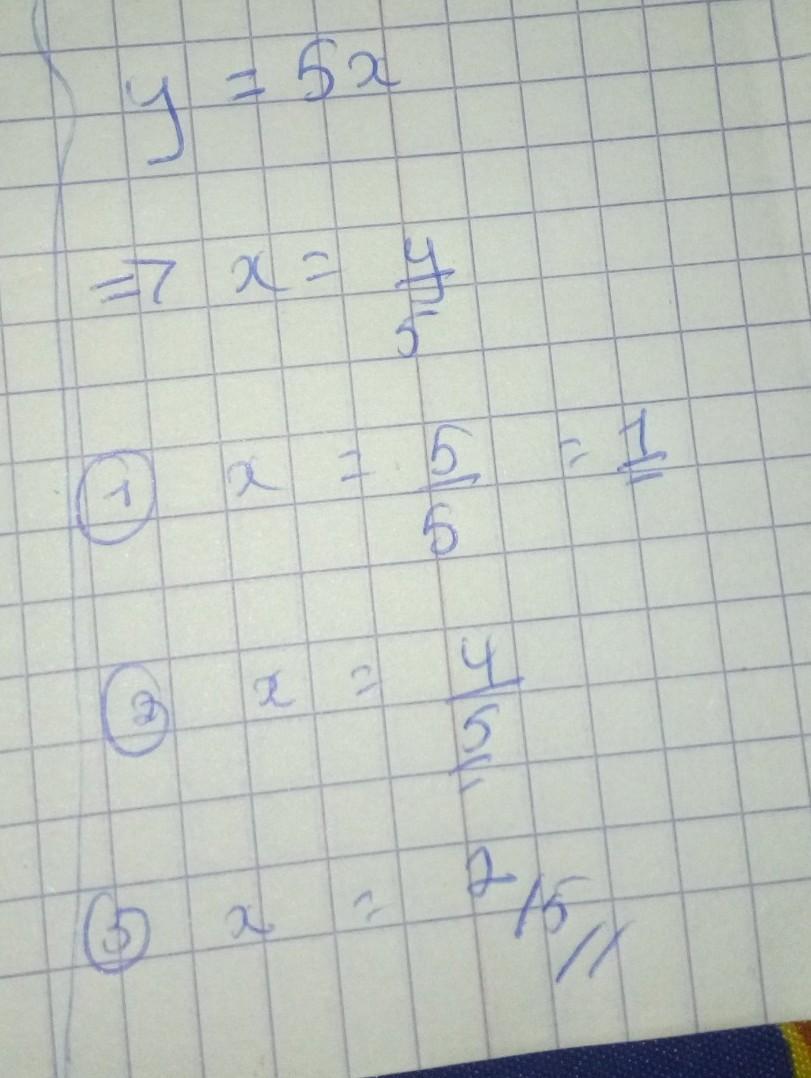 y = 5x
=> x = y/5
① x = 5/5 = 1
② x = 4/5
③ x = 2/5//